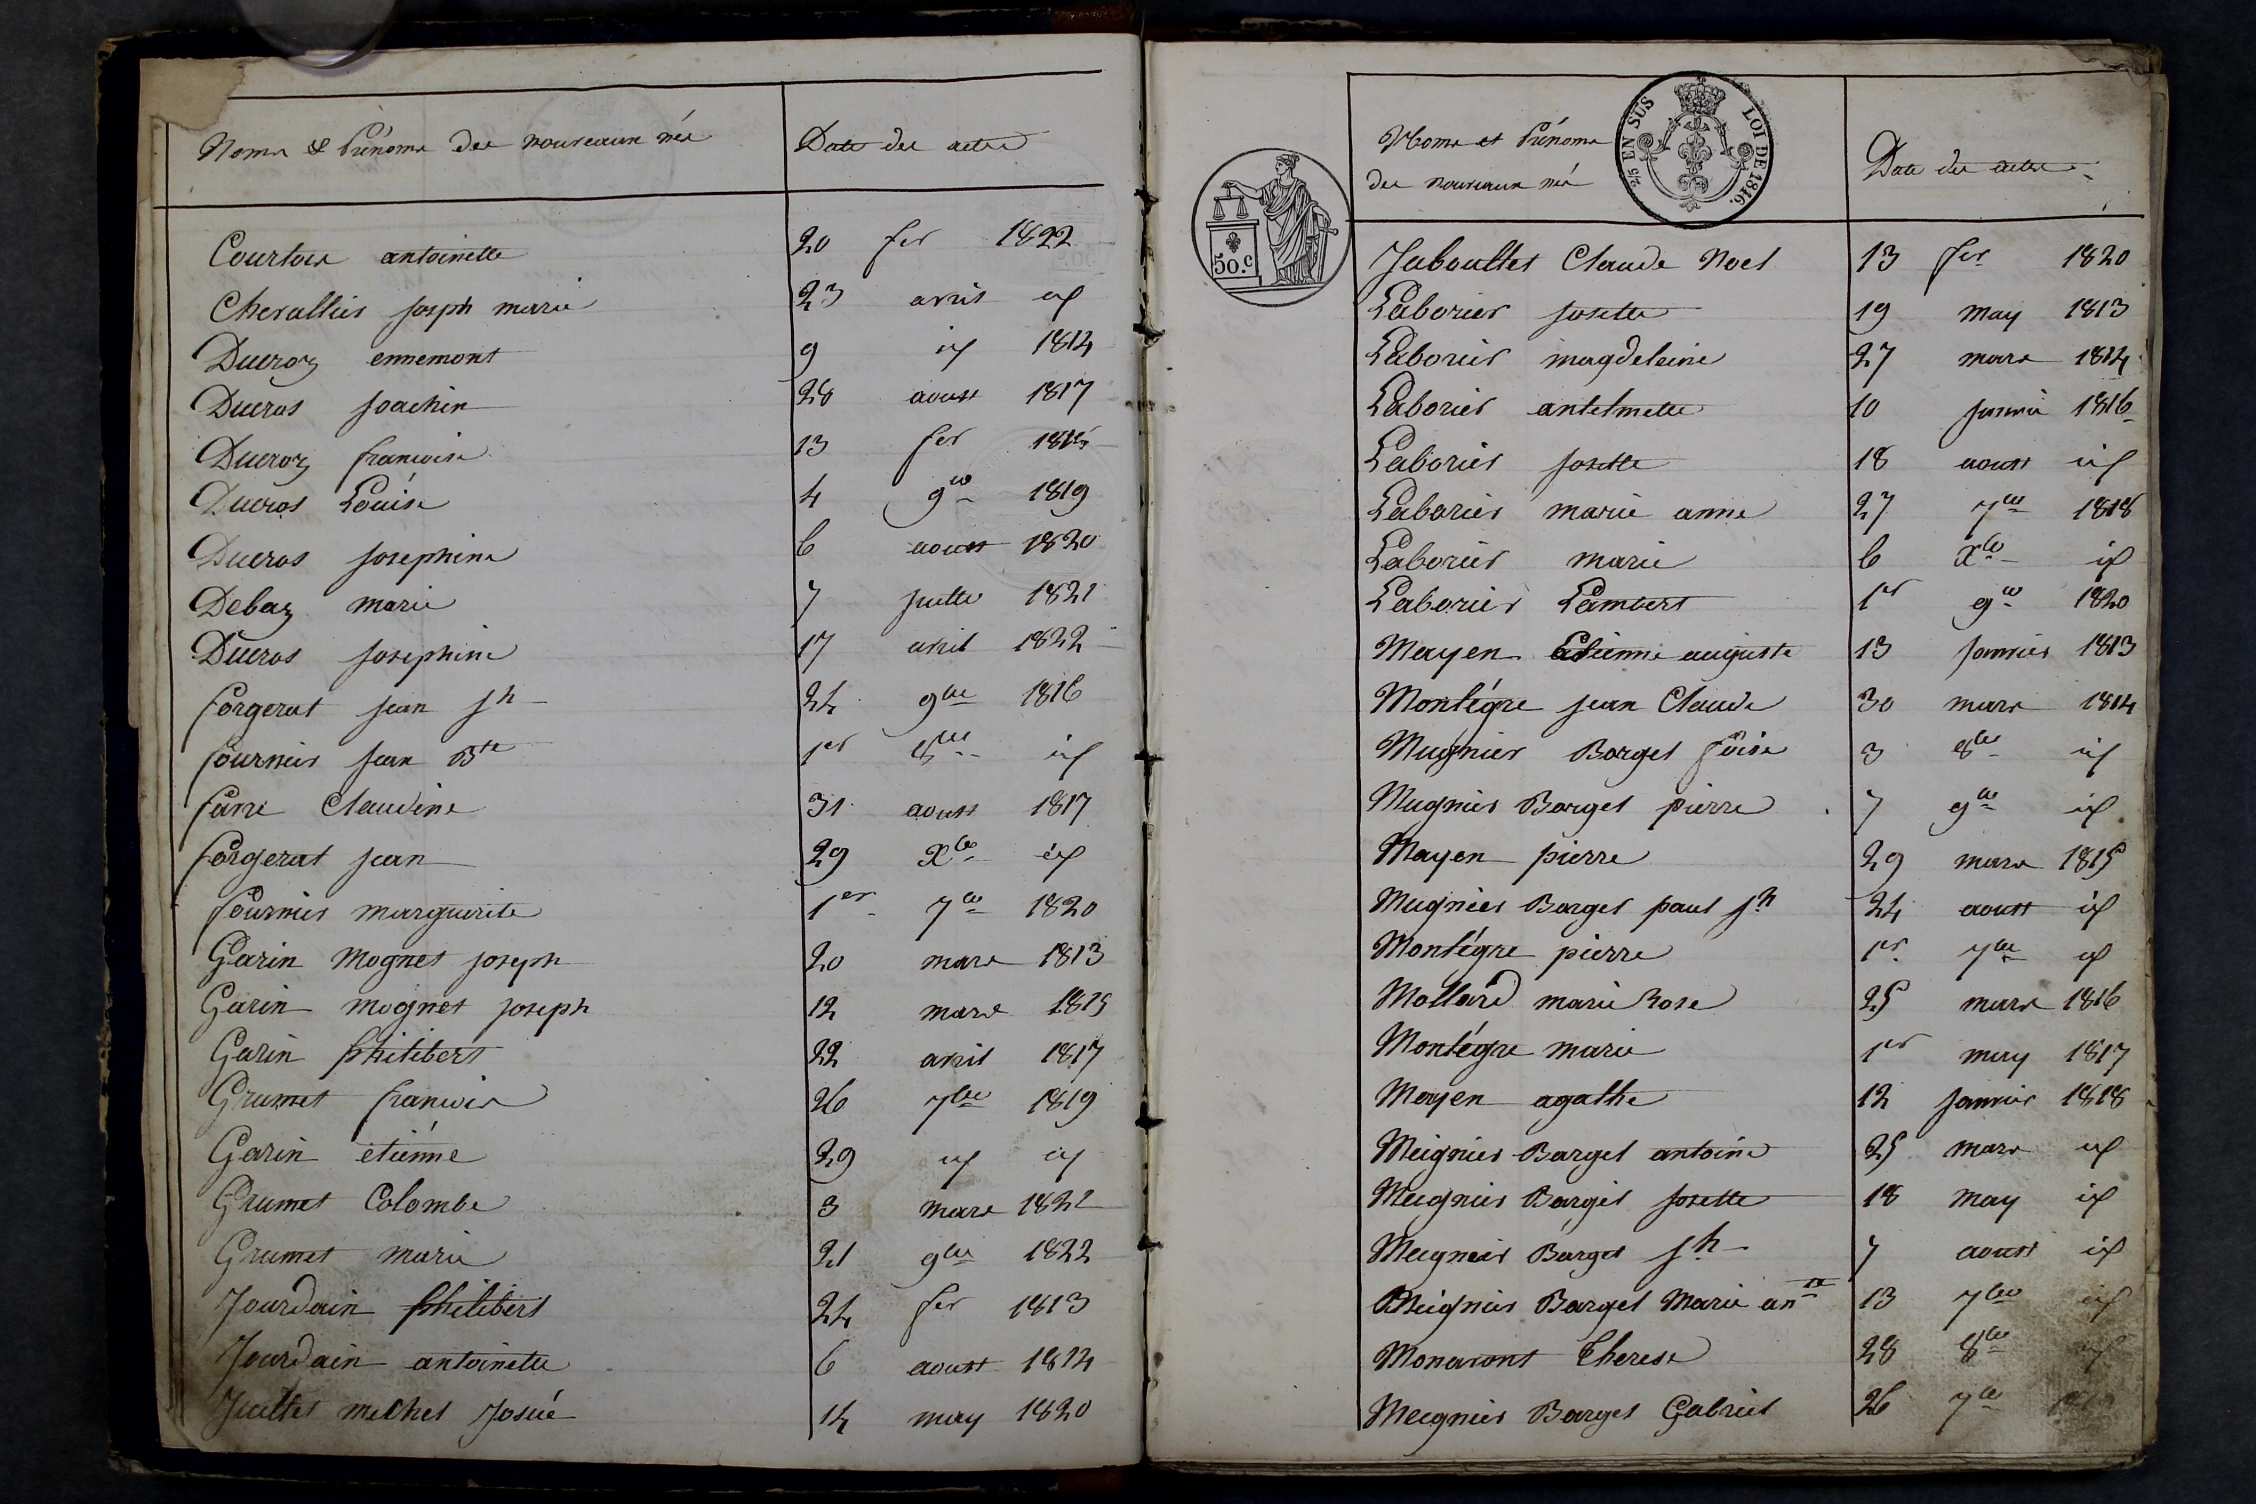 Noms & Prénoms des nouveaux nés Date des actes
Courtois antoinette 20 fer 1822
Chevallier joseph marie 23 avril id
Ducroz ennemont 9 id 1814
Ducros joachin 28 aoust 1817
Ducroz francoise 13 fer
Ducros Louise 4 9bre 1819
Ducros josephine 6 aoust 1820
Debaz marie 7 juillet 1821
Ducros josephine 17 avril 1822
forgerat jean jh 24 9bre 1816
fournier jean Bte 1er 8bre id
favre Claudine 31 aoust 1817
forgerat jean 29 Xbre id
fournier marguerite 1er 7bre 1820
Garin Mognet joseph 20 mars 1813
Garin mognet joseph 12 mars 1815
Garin philibert 22 avril 1817
Grumet francois 26 7bre 1819
Garin etiénne 29 id id
Grumet Colombe 3 mars 1822
Grumet marie 21 9bre 1822
Jourdain philibert 24 fer 1813
Jourdain antoinette 6 aoust 1814
Juillet michel Josué 14 may 1820
2/5 EN SUS LOI DE 1816.
50.c
Noms et Prénoms
des nouveaux nés Date des actes
Jaboullet Claude Noel 13 fer 1820
Laborier josette 19 may 1813
Laborier magdeleine 27 mars 1814
Laborier antelmette 10 janvier 1816
Laborier josette 18 aoust id
Laborier marie anne 27 7bre 1818
Laborier marie 6 Xbre id
Laborier Lambert 1er 9bre 1820
Mayen Etienne auguste 13 janvier 1813
Montégre jean Claude 30 mars 1814
Mugnier Barget foise 3 8bre id
Mugnier Barget pierre 7 9bre id
Mayen pierre 29 mars 1815
Mugnier Barget paul jh 24 aoust id
Montégre pierre 1er 7bre id
Mollard marie Rose 25 mars 1816
Montégre marie 1er may 1817
Mayen agathe 12 janvier 1818
Meignier Barget antoine 25 mars id
Meignier Barget josette 18 may id
Meignier Barget jh 7 aoust id
Meignier Barget Marie anne 13 7bre id
Monavont Therese 28 8bre id
Meignier Barget Gabriel 26 7bre